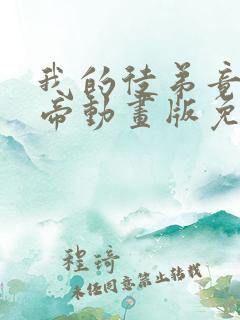 我的徒弟竟
帝動畫版免
程琦
未经同意禁止转载